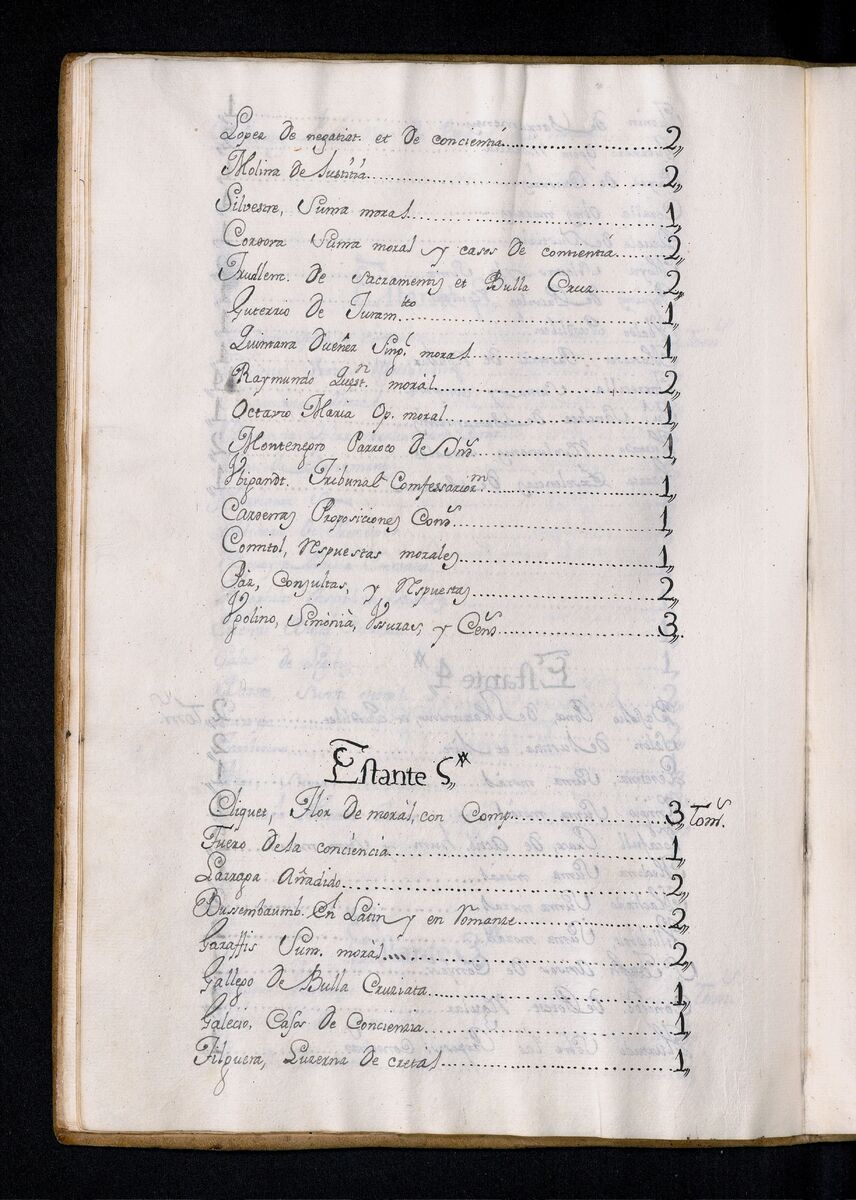 Lopez de negatiat. et de concientiá........2,,
Molina de Iustitiá........2,,
Silvestre, Suma moral........1,,
Cordova Suma moral y casos de contientiá........2,,
Trullenc. de Sacramentis et Bulla Cruz........2,,
Guterrio de Iuram.to........1,,
Quintana Dueñez Sing.l moral........1,,
Raymundo Quest.n morál........2,,
Octavio Maria Op. moral........1,,
Montenegro Parroco de Ind.s........1,,
Wigandt. Tribunal Comfessarior.m........1,,
Cardenas Proposiciones Con.s........1,,
Comitol, Respuestas morales........1,,
Páz, Conzultas, y Respuestas........2,,
Vgolino, Simònià, Vsuras, y Cen.s........3,,
Estante 5,,*
Cliquet, Flor de morál, con Comp........3,, Tom.s
Fuero de la conciencia........1,,
Larraga Añadido........2,,
Bussembaumb. en Latin y en Romanze........2,,
Garaffis Sum. morál........2,,
Gallego de Bulla Cruziata........1,,
Galecio, Casos de Concienzia........1,,
Filguera, Luzerna de cretal........1,,